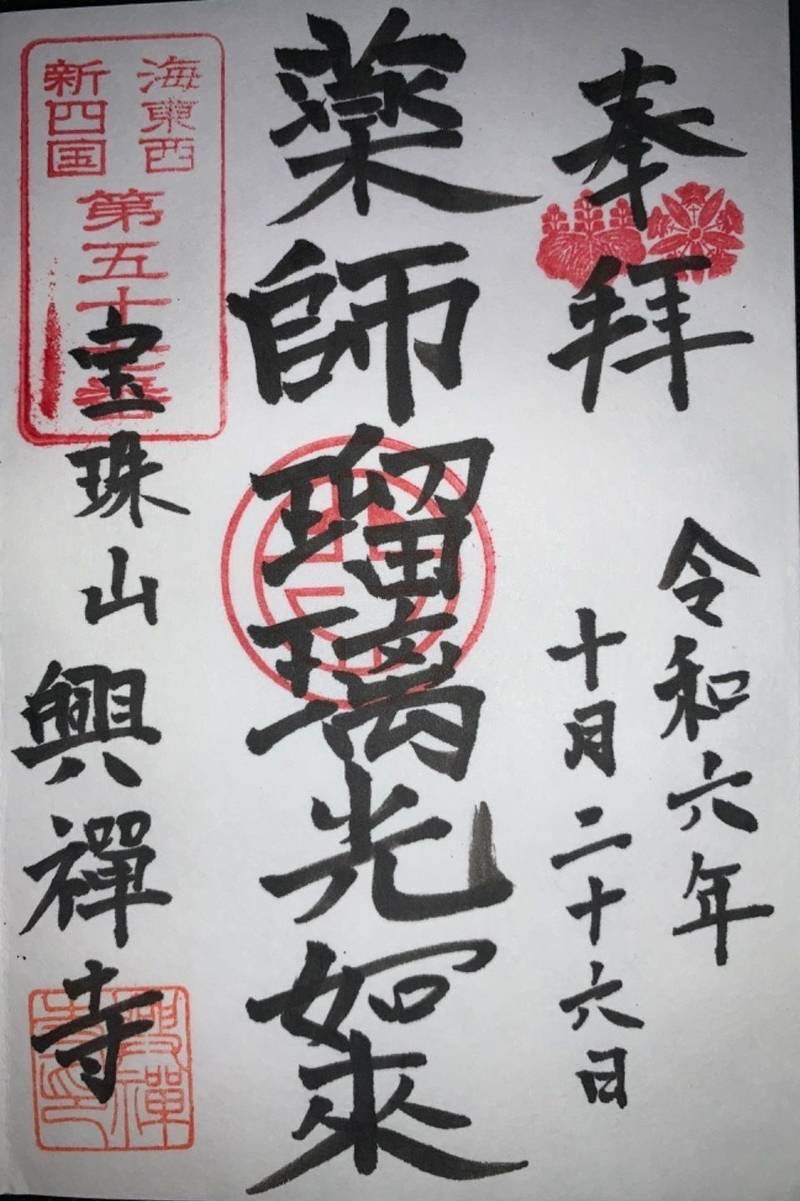 奉拝
令和六年
十月二十六日
薬師瑠璃光如來
海東西
新四国
第五十
宝珠山興禅寺